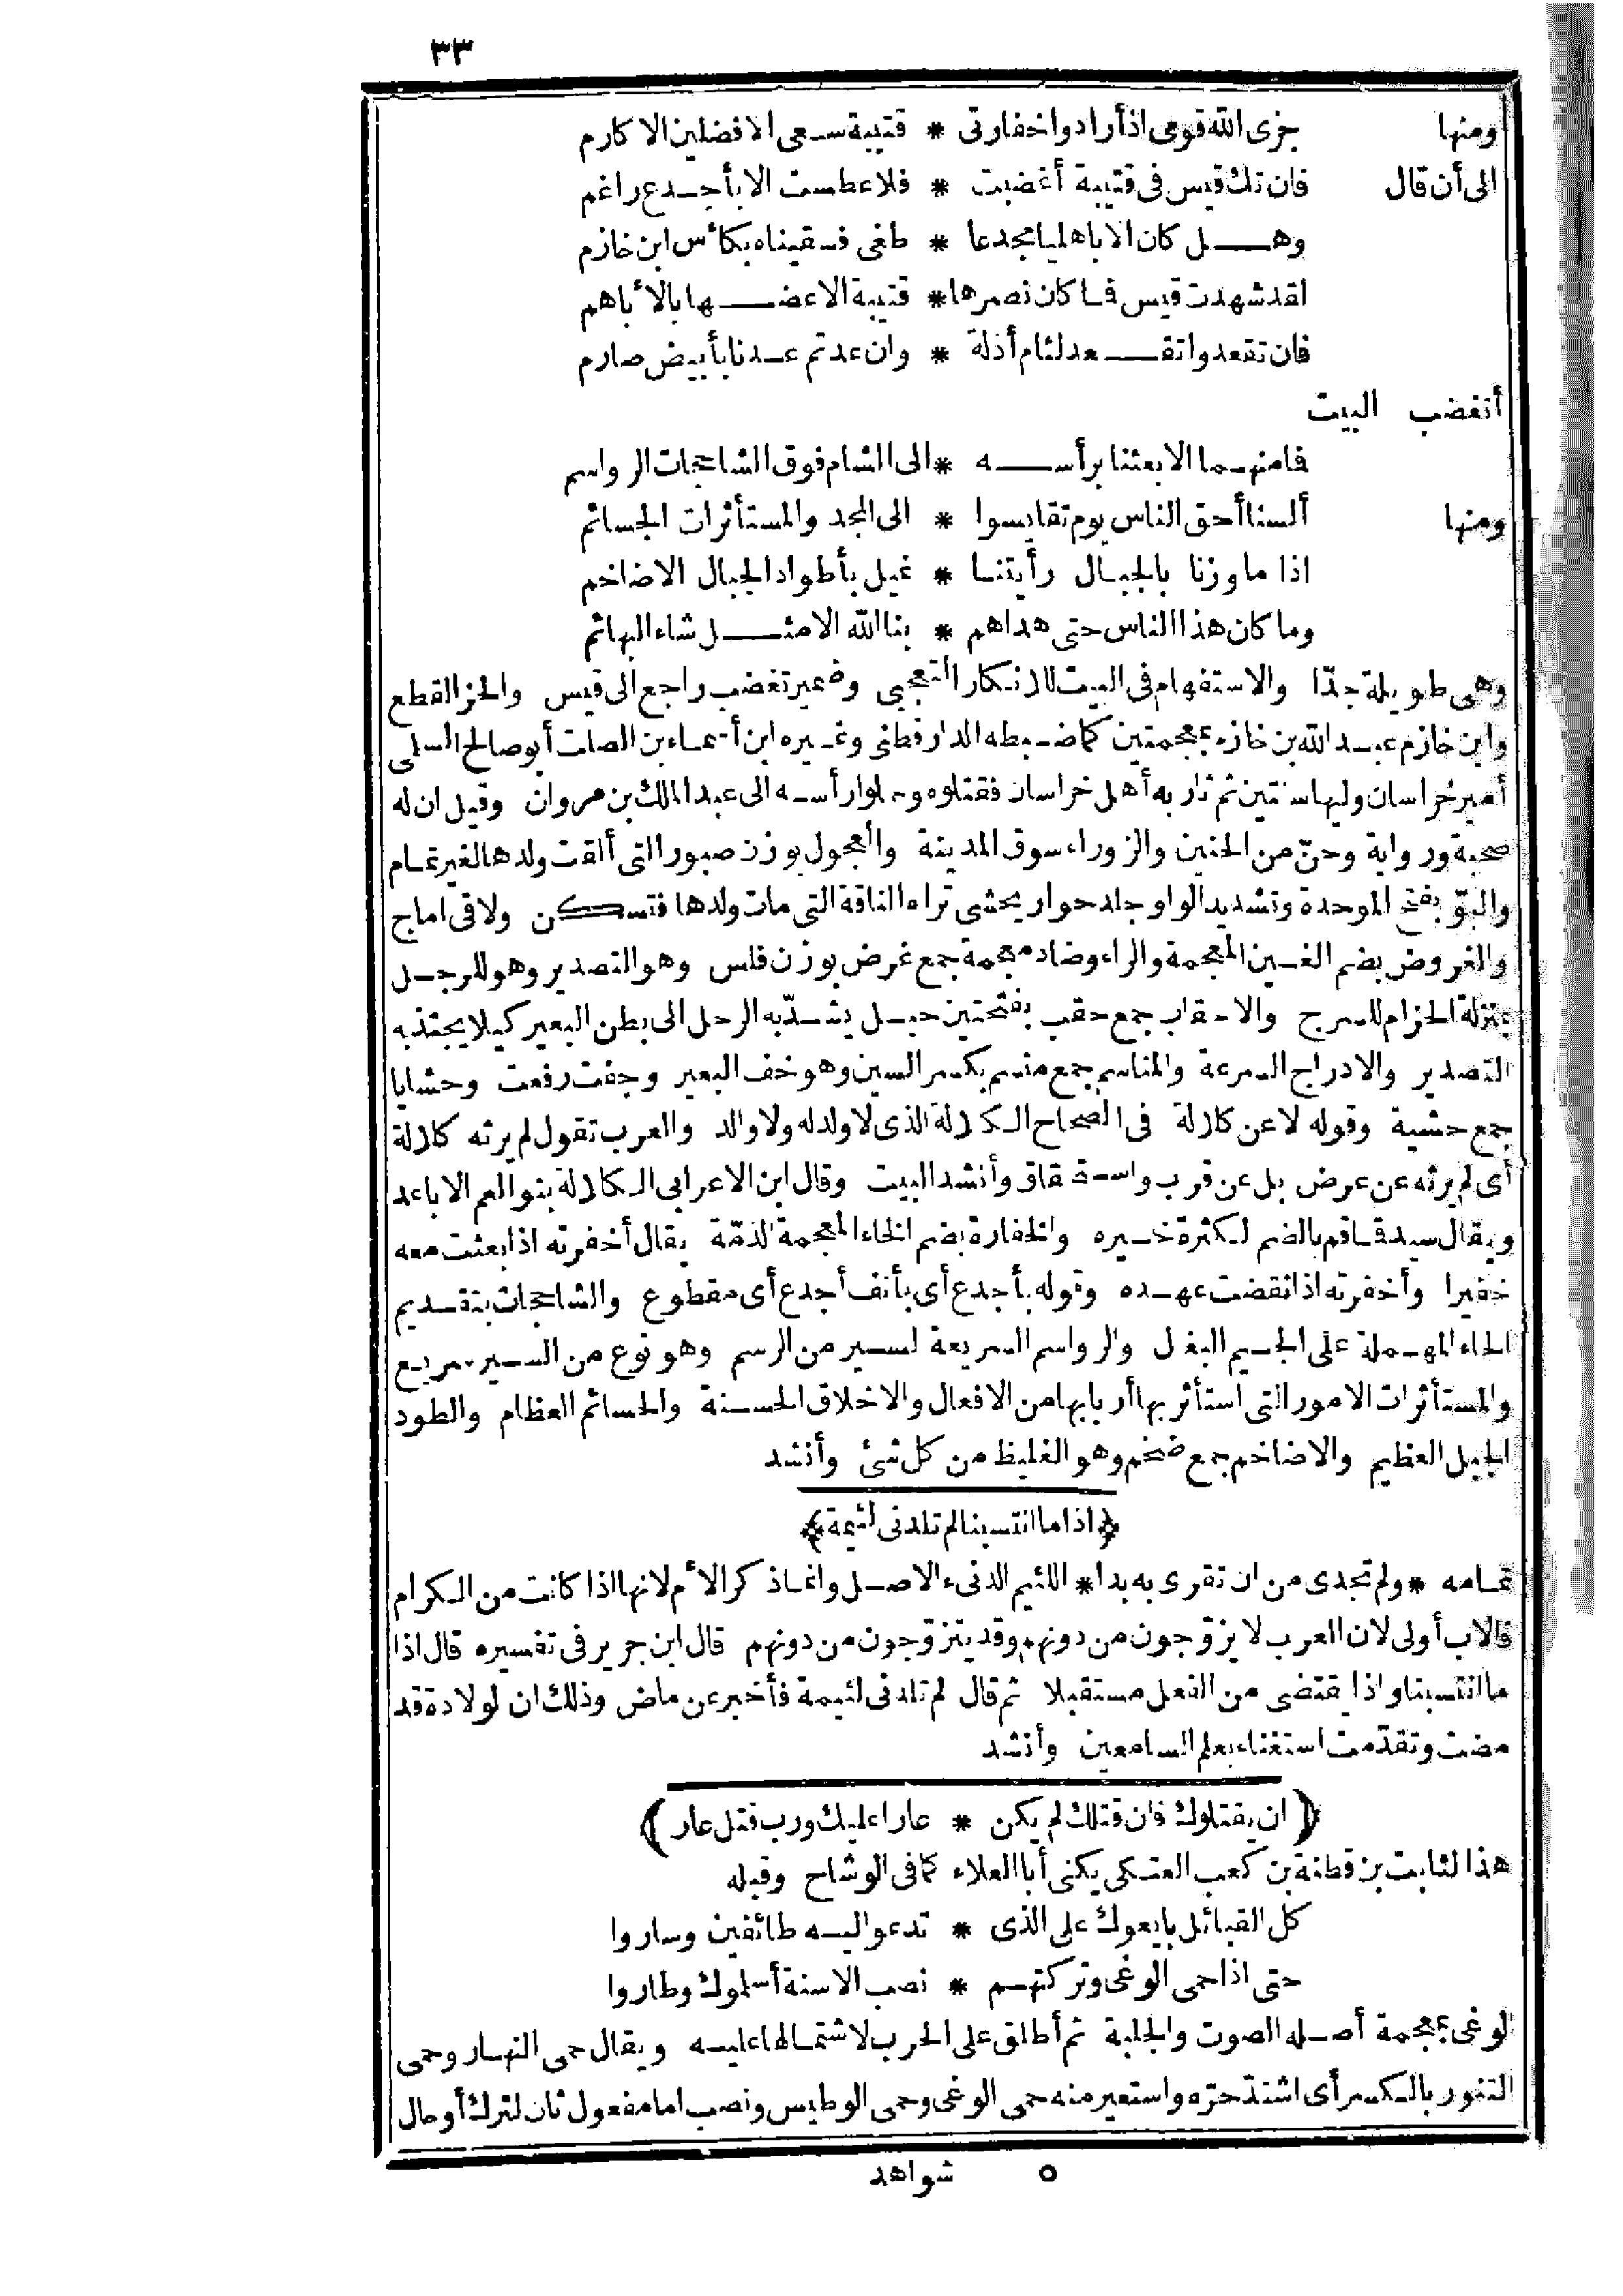 ٣٣
ومنها جزى الله قومى اذ أرادوا خفارتى * قتيبة سعى الافضلين الاكارم
الى أن قال فان تك قيس فى قتيبة أغضبت * فلا عطست الا بأجدع راغم
وهل كان الا باهليا مجدعا * طغى فسقيناه بكأس ابن خازم
لقد شهدت قيس فما كان نصرها * قتيبة الا عضها بالأباهم
فان تقعدوا تقعد لئام أذلة * وان عدتم عدنا بأبيض صارم
أتغضب البيت
فما منهما الا بعثنا برأسه * الى الشام فوق الشاحجات الرواسم
ومنها ألسنا أحق الناس يوم تقايسوا * الى المجد والمستأثرات الجسائم
اذا ما وزنا بالجبال رأيتنا * نميل بأطواد الجبال الاضاخم
وما كان هذا الناس حتى هداهم * بنا الله الا مثل شاء البهائم
وهى طويلة جدّا والاستفهام فى البيت للانكار التعجبى وضمير تغضب راجع الى قيس والحز القطع
وابن خازم عبد الله بن خازم بمعجمتين كما ضبطه الدارقطنى وغيره ابن أسماء بن الصلت أبو صالح السلمى
أمير خراسان وليها سنتين ثم ثار به أهل خراسان فقتلوه وحملوا رأسه الى عبد الملك بن مروان وقيل ان له
صحبة ورواية وحنّ من الحنين والزوراء سوق المدينة والعجول بوزن صبور التى ألقت ولدها لغير تمام
والبوّ بفتح الموحدة وتشديد الواو جلد حوار يحشى تراه الناقة التى مات ولدها فتسكن ولاقى اماج
والغروض بضم الغين المعجمة والراء وضاد معجمة جمع غرض بوزن فلس وهو التصدير وهو للرحل
بمنزلة الحزام للسرج والاحقاب جمع حقب بفتحتين حبل يشدّ به الرحل الى بطن البعير كيلا يجتذبه
التصدير والادراج السرعة والمناسم جمع منسم بكسر السين وهو خف البعير وجفت رفعت وحشايا
جمع حشية وقوله لا عن كلالة فى الصحاح الكلالة الذى لا ولد له ولا والد والعرب تقول لم يرثه كلالة
أى لم يرثه عن عرض بل عن قرب واستحقاق وأنشد البيت وقال ابن الاعرابى الكلالة بنو العم الاباعد
ويقال سيد قماقم بالضم لكثرة خيره والخفارة بضم الخاء المعجمة الذمّة يقال أخفرته اذا بعثت معه
خفيرا وأخفرته اذا نقضت عهده وقوله بأجدع أى بأنف أجدع أى مقطوع والشاحجات بتقديم
الحاء المهملة على الجيم البغال والرواسم السريعة لسير من الرسم وهو نوع من السير سريع
والمستأثرات الامور التى استأثر بها أربابها من الافعال والاخلاق الحسنة والجسائم العظام والطود
الجبل العظيم والاضاخم جمع ضخم وهو الغليظ من كل شئ وأنشد
﴿اذا ما انتسبنا لم تلدنى لئيمة﴾
تمامه * ولم تجدى من ان تقرى به بدا * اللئيم الدنىء الاصل وانما ذكر الأم لانها اذا كانت من الكرام
فالاب أولى لان العرب لا يزوّجون من دونهم وقد يتزوّجون من دونهم قال ابن جرير فى تفسيره قال اذا
ما انتسبنا واذا يقتضى من الفعل مستقبلا ثم قال لم تلدنى لئيمة فأخبر عن ماض وذلك ان الولادة قد
مضت وتقدّمت استغناء بعلم السامعين وأنشد
(ان يقتلوك فان قتلك لم يكن * عارا عليك ورب قتل عار)
هذا لثابت بن قطنة بن كعب العتكى يكنى أبا العلاء كما فى الوشاح وقبله
كل القبائل بايعوك على الذى * تدعو اليه طائفين وساروا
حتى اذا حمى الوغى وتركتهم * نصب الاسنة أسلموك وطاروا
الوغى بمعجمة أصله الصوت والجلبة ثم أطلق على الحرب لاشتمالها عليه ويقال حمى النهار وحمى
التنور بالكسر أى اشتدّ حرّه واستعير منه حمى الوغى وحمى الوطيس ونصب اما مفعول ثان لترك أو حال
٥ شواهد